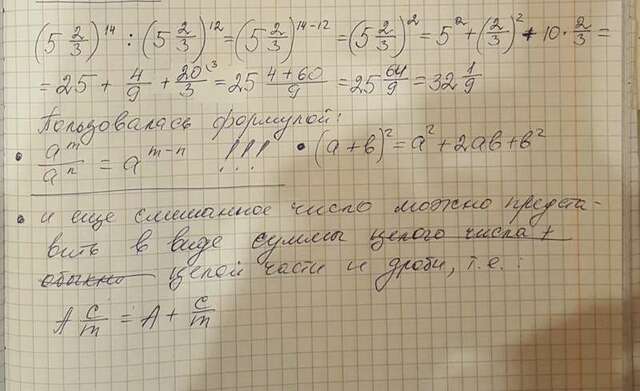 (5 2/3)^14 : (5 2/3)^12 = (5 2/3)^14-12 = (5 2/3)^2 = 5^2 + (2/3)^2 + 10 · 2/3 =
= 25 + 4/9 + 20/3 (3 = 25 4+60/9 = 25 64/9 = 32 1/9
Пользовалась формулой:
• a^m/a^n = a^m-n !!! • (a+b)^2 = a^2 + 2ab + b^2
• и еще смешанное число можно предста-
вить в виде суммы целого числа +
обыкно целой части и дроби, т.е.:
A c/m = A + c/m